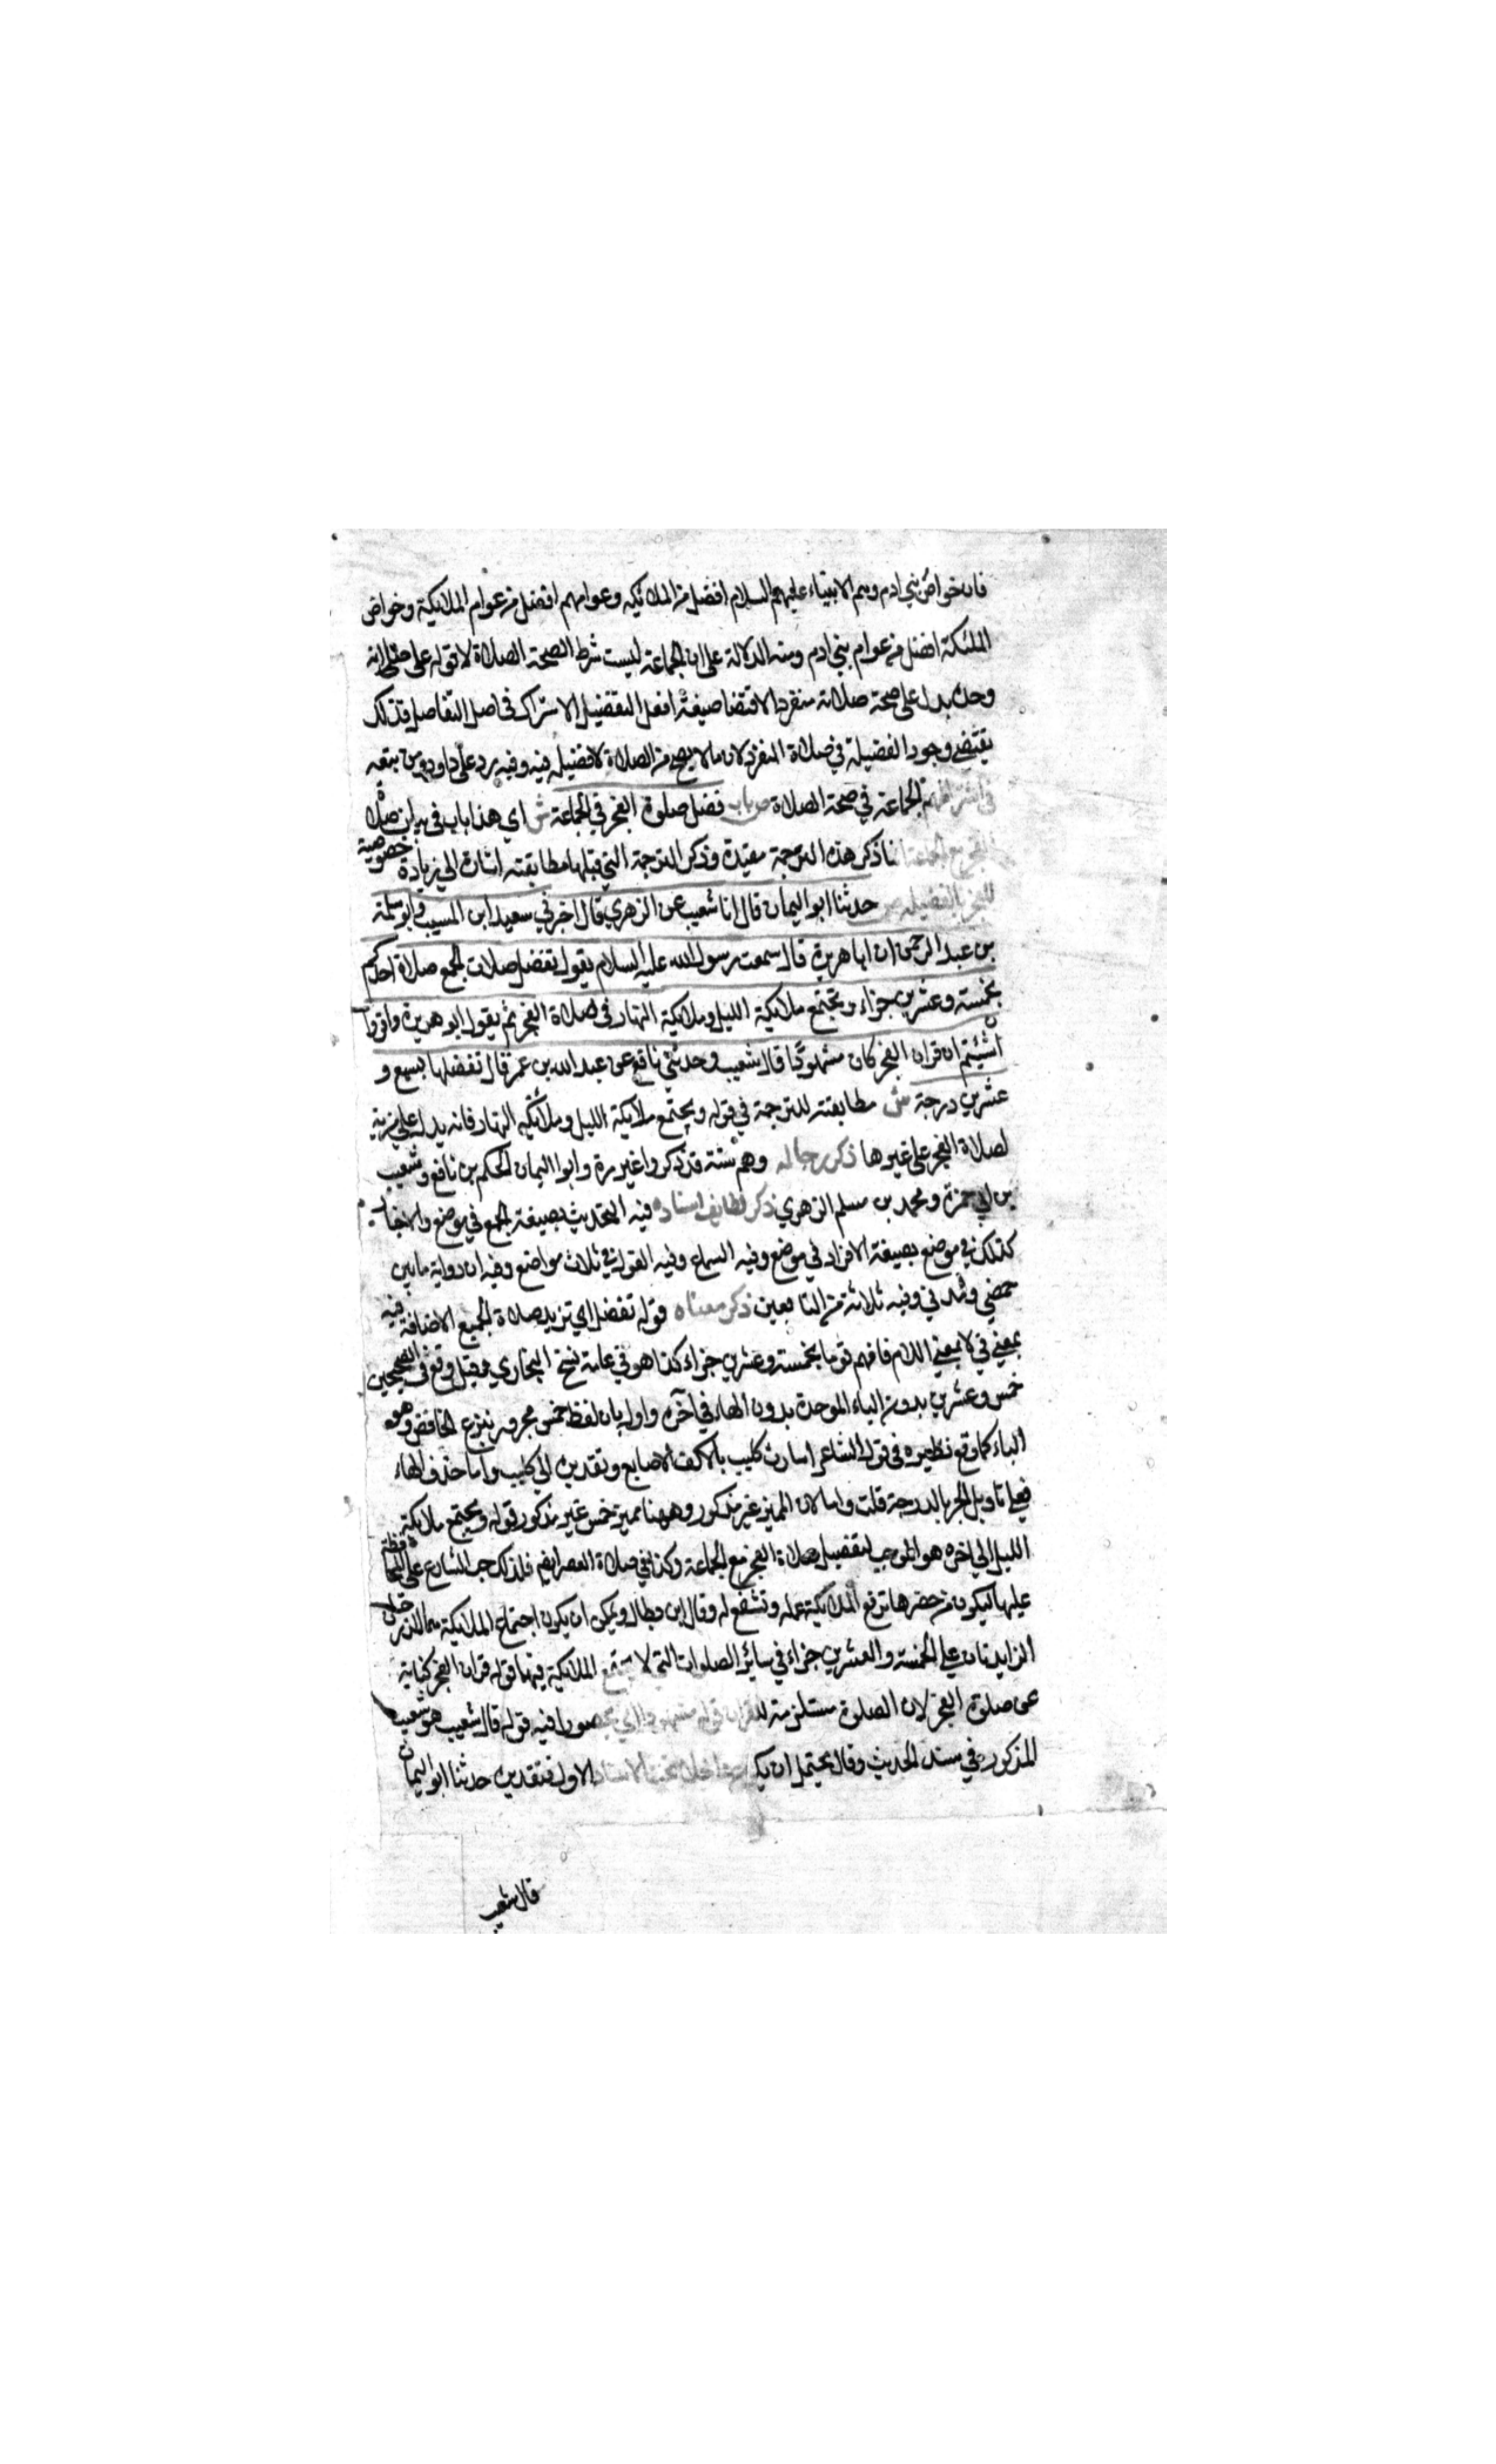 فان خواص بني ادم وهم الانبياء عليهم السلام افضل من الملائكة وعوامهم افضل من عوام الملائكة وخواص
الملئكة افضل من عوام بني ادم ومنه الدلالة على ان الجماعة ليست شرط الصحة الصلاة لان قوله على صلاته
وحده يدل على صحة صلاته منفردا لاقتضا صيغة افعل التفضيل الاشتراك في اصل التفاضل فذلك
يقتضي وجود الفضيلة في صلاة المنفرد لان ما لا يصح من الصلاة لا فضيلة فيه وفيه رد على داود ومن تبعه
في اشتراطهم الجماعة في صحة الصلاة ص باب فضل صلوة الفجر في الجماعة ش اي هذا باب في بيان فضل صلاة
الفجر مع الجماعة انما ذكر هذه الترجمة مقيدة وذكر الترجمة التي قبلها مطابقته اشارة الي زيادة خصوصية
للفجر بالفضيلة ص حدثنا ابو اليمان قال انا شعيب عن الزهري قال اخبرني سعيد ابن المسيب وابو سلمة
بن عبد الرحمن ان ابا هريرة قال سمعت رسول الله عليه السلام يقول تفضل صلات الجمع صلاة احدكم
بخمسة وعشرين جزاء وتجتمع ملائكة الليل وملائكة النهار في صلاة الفجر ثم يقول ابو هريرة واقروا
ان شيتم ان قران الفجر كان مشهودا قال شعيب وحدثني نافع عن عبد الله بن عمر قال تفضلها بسبع و
عشرين درجة ش مطابقته للترجمة في قوله ويجتمع ملائكة الليل وملائكة النهار فانه يدل علي مزية
لصلاة الفجر على غيرها ذكر رجاله وهم ستة قد ذكروا غير مرة وابوا اليمان الحكم بن نافع وشعيب
بن ابي حمزة ومحمد بن مسلم الزهري ذكر لطايف اسناده فيه التحديث بصيغة الجمع في موضع والاخبار
كذلك في موضع بصيغة الافراد في موضع وفيه السماع وفيه القول في ثلاث مواضع وفيه ان رواية ما بين
حمصي ومدني وفيه ثلاثة من التابعين ذكر معناه قوله تفضل اي تزيد صلاة الجميع الاضافة فيه
بمعني في لا بمعني اللام فافهم قوما بخمسة وعشرين جزاء كذا هو في عامة نسخ البخاري وقيل وقع في الصحيحين
خمس وعشرين بدون الباء الموحدة بدون الهاء في آخره واول بان لفظ خمس مجرور بنزع الخافض وهو
الباء كما وقع نظيره في قول الشاعر اشارت كليب بالاكف الاصابع وتقديره الي كليب واما حذف الهاء
فعلي تاويل الجزء بالدرجة قلت واما لان المميز غير مذكور وههنا مميز خمس غير مذكور قوله وتجتمع ملائكة
الليل الي اخره هو الموجب لتفضيل صلاة الفجر مع الجماعة وكذا في صلاة العصر ايضا فلذلك حث الشارع على المحافظة
عليها ليكون من حضرها ترفع الملائكة عمله وتشفع له وقال ابن بطال ويمكن ان يكون اجتماع الملائكة هما الدرجتان
الزايدتان علي الخمسة والعشرين جزاء في سائر الصلوات التي لا تجتمع الملائكة فيها قوله قران الفجر كناية
عن صلوة الفجر لان الصلوة مستلزمة للقران قوله مشهودا اي محضورا فيه قوله قال شعيب هو شعيب
المذكور في سند الحديث وقال يحتمل ان يكون داخلا تحت الاسناد الاول فتقديره حدثنا ابو اليمان
قال شعيب